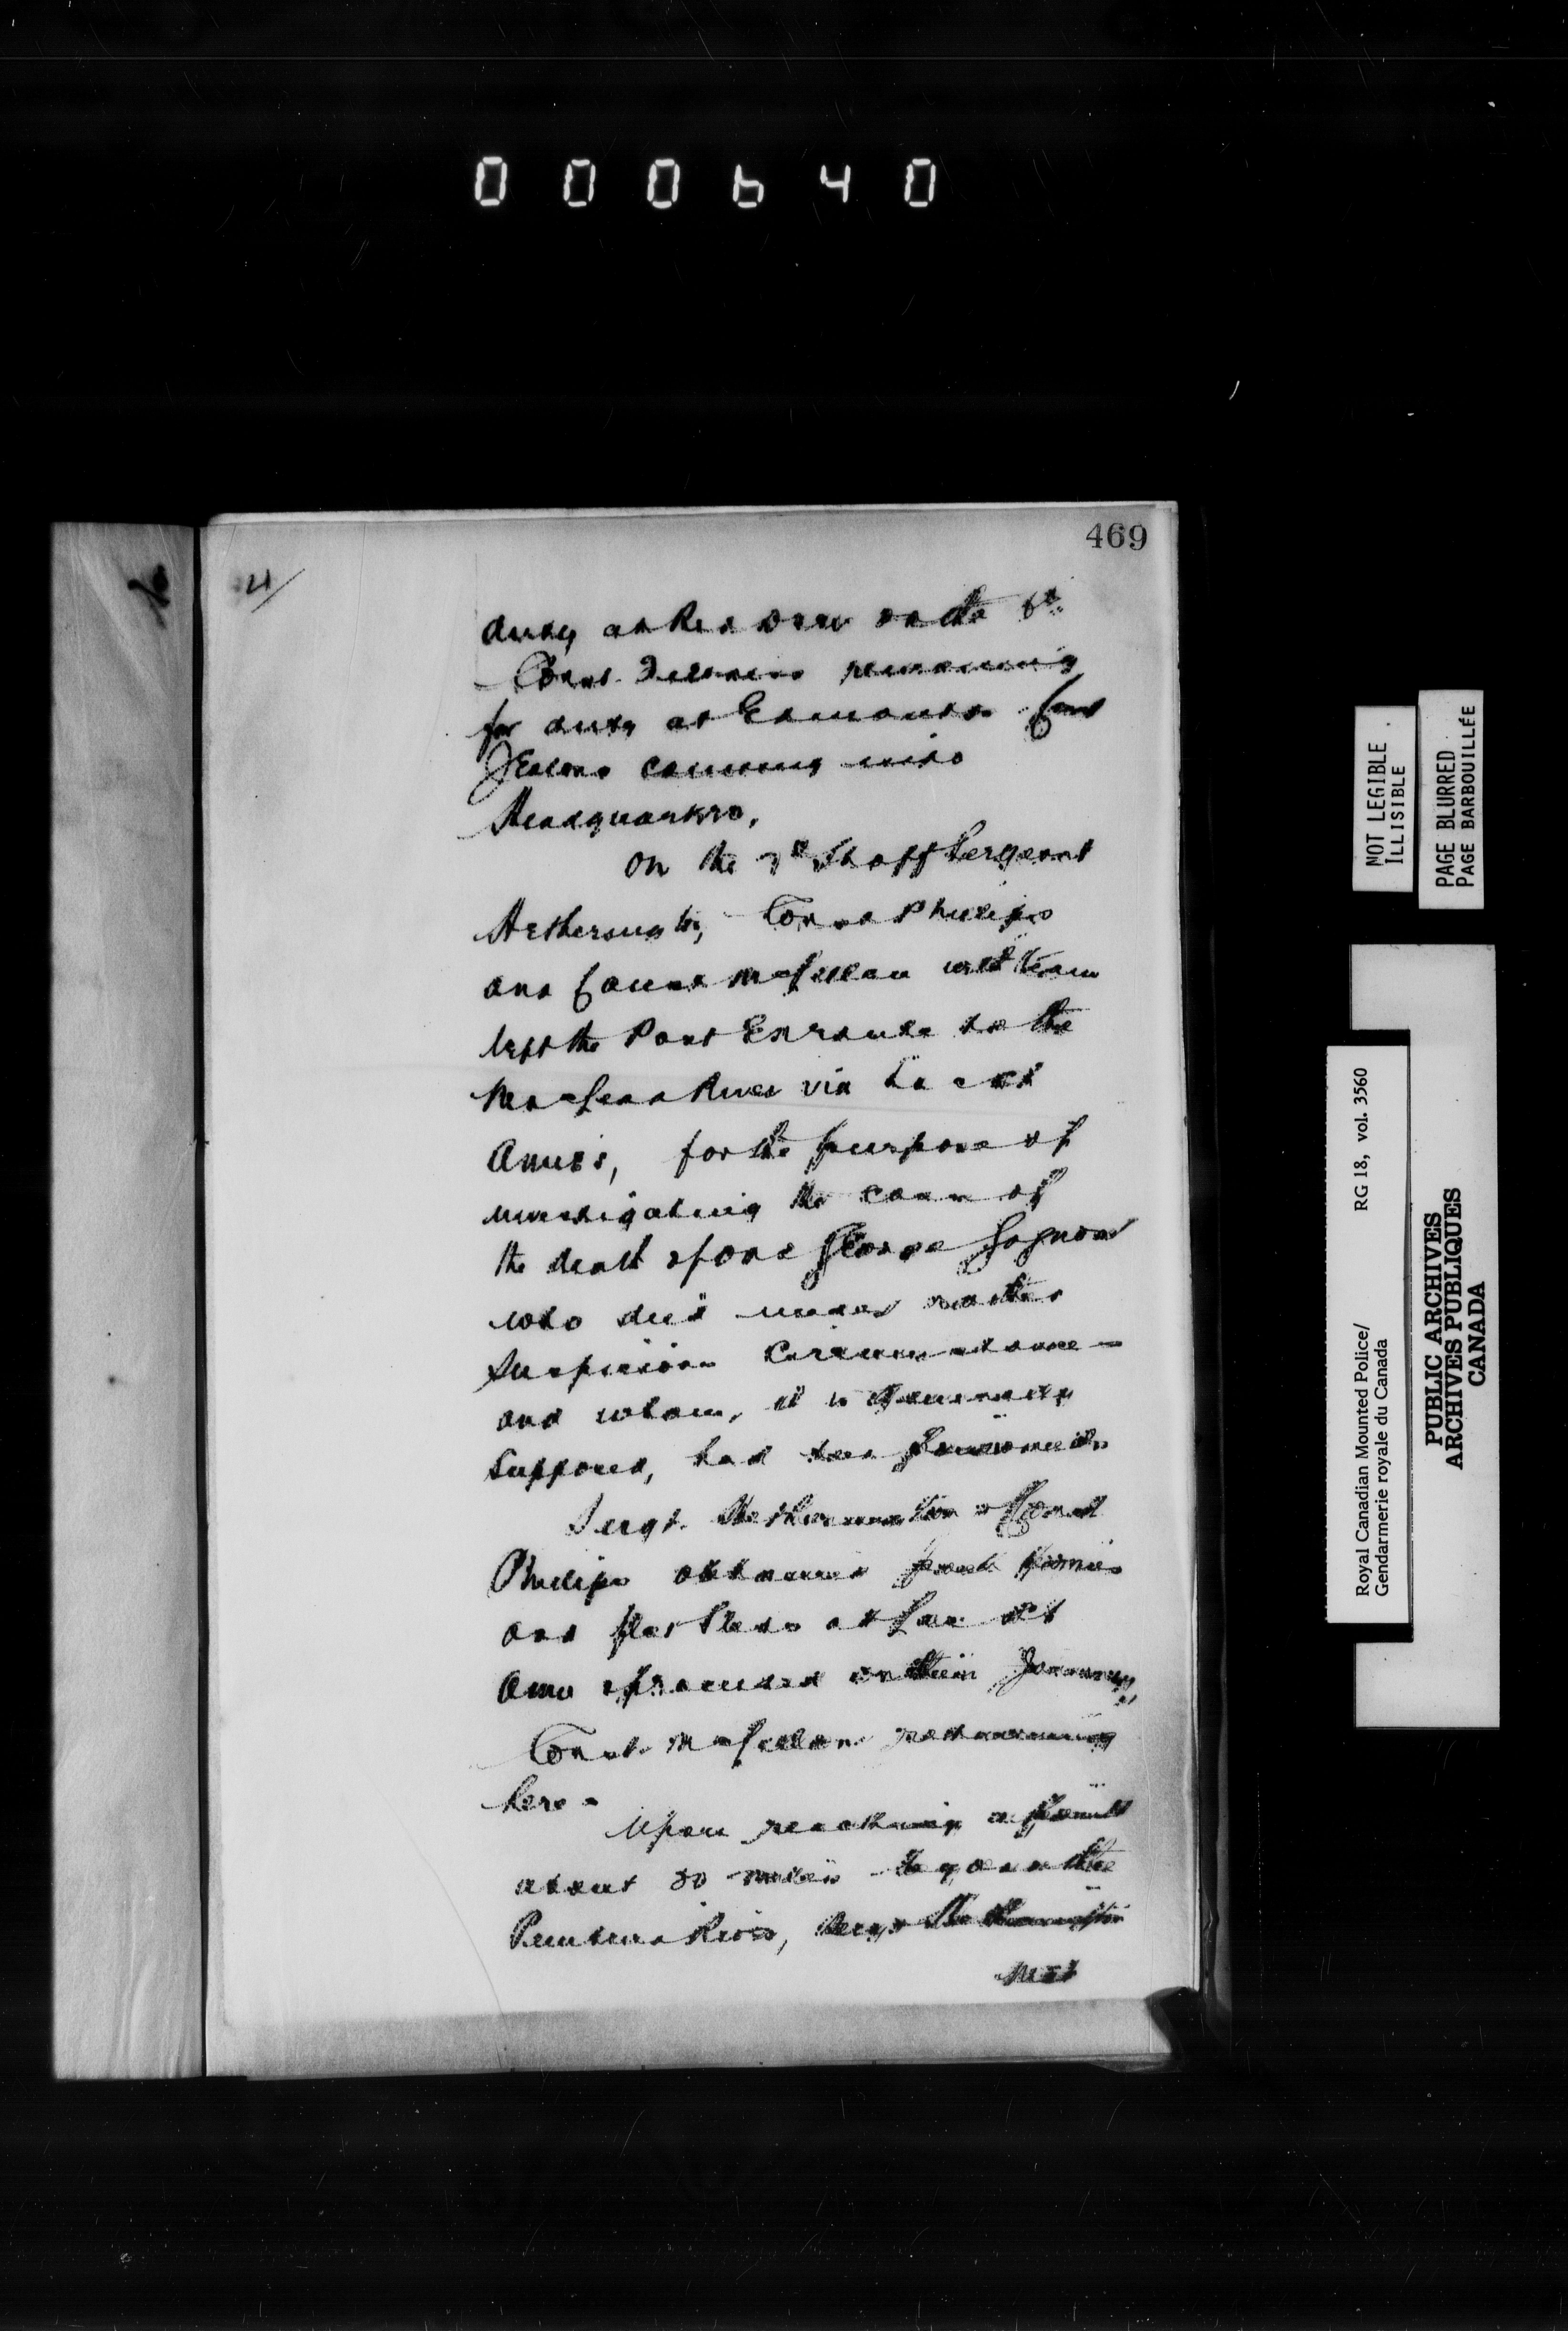 000640
469
4/
duty at Red Deer on the 6th
Const. remaining
for duty at Edmonton Const
coming into
Headquarters,
On the 7th Staff Sergeant
Hetherington, Const Philips
and Const McLellan with team
left the Post Enroute to the
McLeod River via Lac Ste
Anne's, for the purpose of
investigating the cause of
the death of one George Gagnon
who died under rather
suspicious circumstances
and whom, it is generally
supposed, had been poisoned.
Sergt. Hetherington & Const
Philips obtained fresh ponies
and flat sleds at Lac St
Anne & proceeded on their journey,
Const. McLellan returning
here.
Upon reaching a point
about 30 miles beyond the
Pembina River, Sergt Hetherington
met
NOT LEGIBLE
ILLISIBLE
PAGE BLURRED
PAGE BARBOUILLÉE
Royal Canadian Mounted Police/ RG 18, vol. 3560
Gendarmerie royale du Canada
PUBLIC ARCHIVES
ARCHIVES PUBLIQUES
CANADA